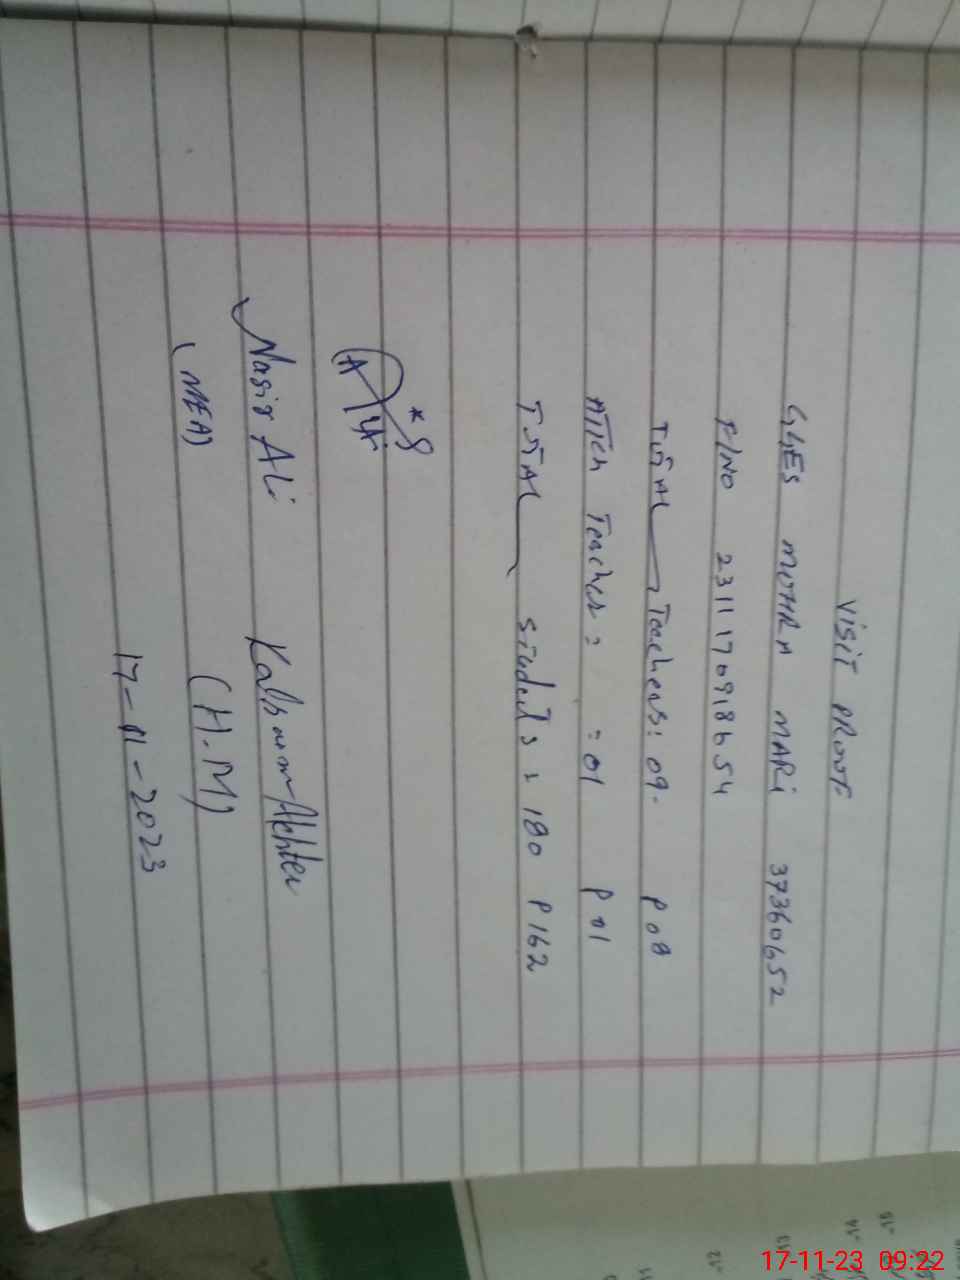 VISIT PROOF
GGES MOHRA MARI 37360652
F/NO 2311170918654
TOTAL Teachers: 09. P 08
ATTCH Teacher = = 01 P 01
TOTAL students = 180 P 162
Nasir Ali Kalsoom Akhter
(MEA) (H.M)
17-11-2023
-15
-14
-13
-12
17-11-23 09:22